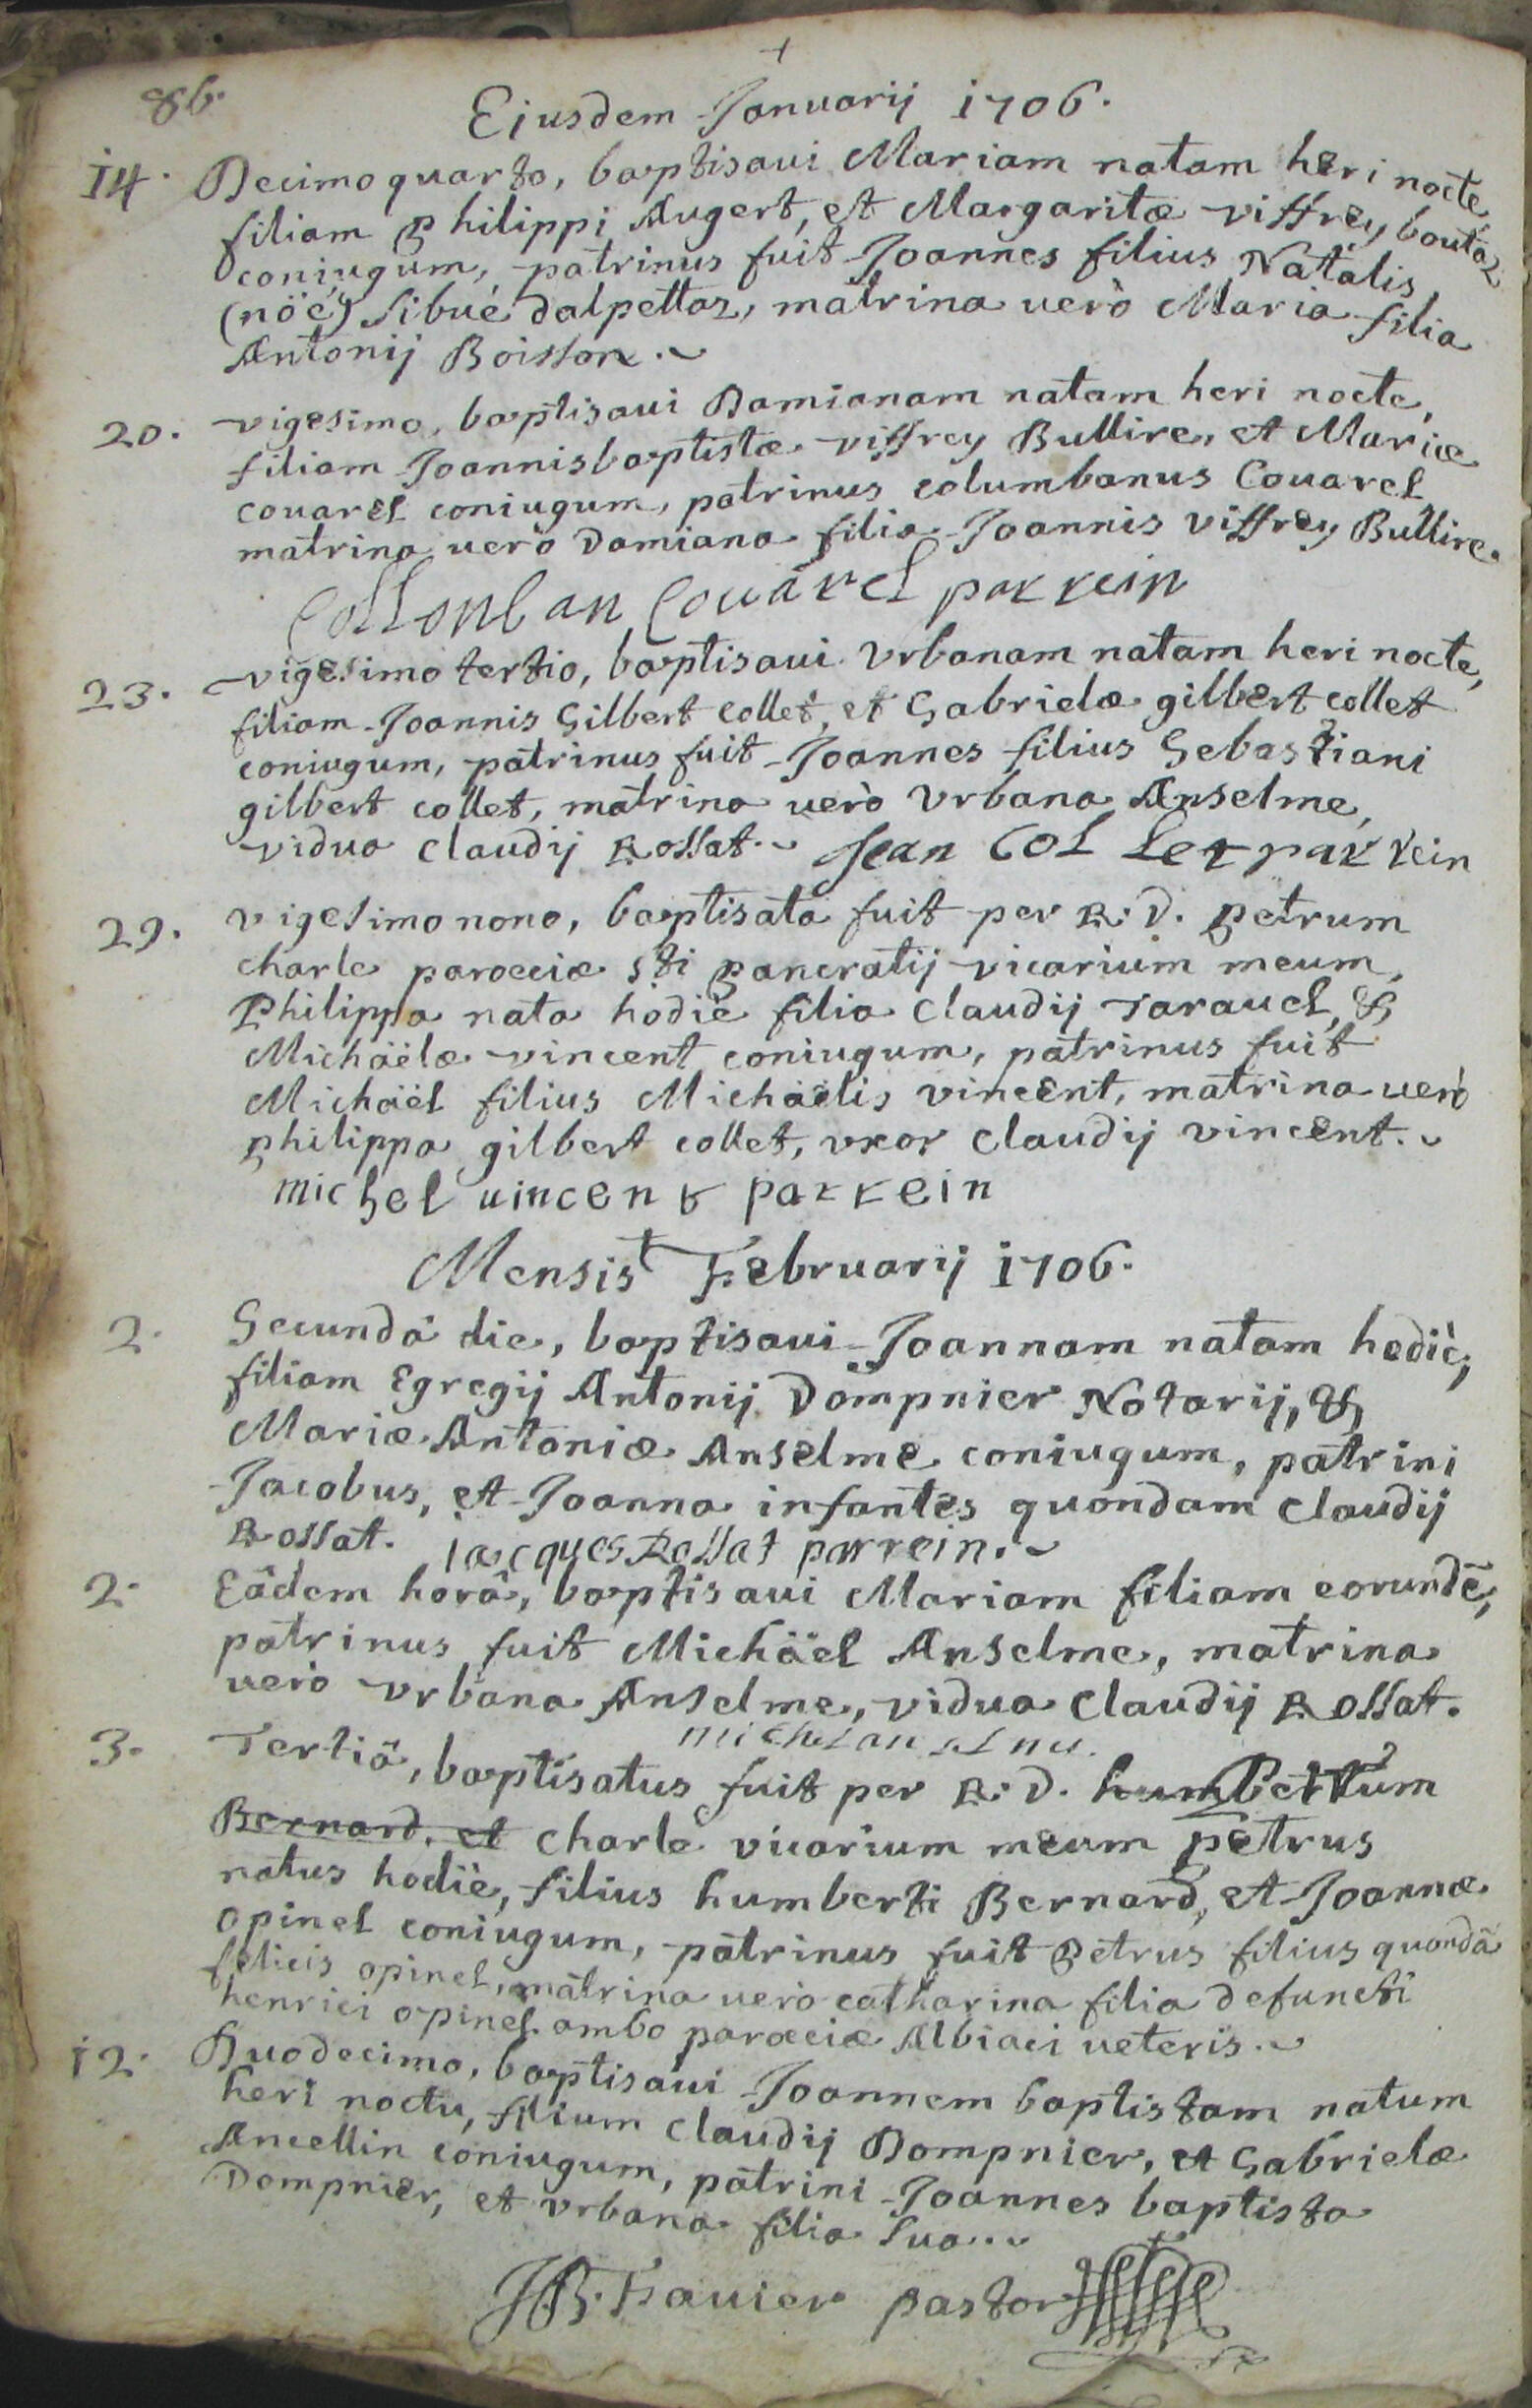 86.
Ejusdem Januarij 1706.
14. Decimoquarto, baptisaui Mariam natam heri nocte,
filiam Philippi Augert, et Margaritæ viffrey boutaz
coniugum, patrinus fuit Joannes filius Natalis
(nöéy) Sibué dalpettaz, matrina uerò Maria filia
Antonij Boisson.~
20. vigesimo, baptisaui Damianam natam heri nocte,
filiam Joannisbaptistæ viffrey Bullire, et Mariæ
couarel coniugum, patrinus columbanus Couarel,
matrina uerò Damiana filia Joannis viffrey Bullire.
Collonban Couarel parrein
23. vigesimo tertio, baptisaui Vrbanam natam heri nocte,
filiam Joannis Gilbert collet, et Gabrielæ gilbert collet
coniugum, patrinus fuit Joannes filius Sebastiani
gilbert collet, matrina uerò Vrbana Anselme,
vidua Claudij Rossat.~ Jean Col Let parrein
29. vigesimo nono, baptisata fuit per R. D. Petrum
charle parocciæ Sti Pancratij vicarium meum,
Philippa nata hodiè filia Claudij Tarauel, &
Michäelæ vincent coniugum, patrinus fuit
Michäel filius Michäelis vincent, matrina uerò
philippa gilbert collet, vxor Claudij vincent.~
michel uincent parrein
Mensis Februarij 1706.
2. Secundâ die, baptisaui Joannam natam hodiè,
filiam Egregij Antonij Dompnier Notarij, &
Mariæ Antoniæ Anselme coniugum, patrini
Jacobus, et Joanna infantes quondam Claudij
Rossat. iacques Rossat parrein.~
2. Eâdem horâ, baptisaui Mariam filiam eorundē,
patrinus fuit Michäel Anselme, matrina
uerò vrbana Anselme, vidua Claudij Rossat.
michel anselme.
3. Tertiâ, baptisatus fuit per R. D. humbertum
Bernard, et charle vicarium meum Petrus
natus hodiè, filius humberti Bernard, et Joannæ
opinel coniugum, patrinus fuit Petrus filius quondā
felicis opinel, matrina uerò catharina filia defuncti
henrici opinel ambo parœciæ Albiaci ueteris.~
12. Duodecimo, baptisaui Joannem baptistam natum
heri noctu, filium Claudij Dompnier, et Gabrielæ
Ancellin coniugum, patrini Joannes baptista
Dompnier, et vrbana filia sua.~
JB. Fauier pastor